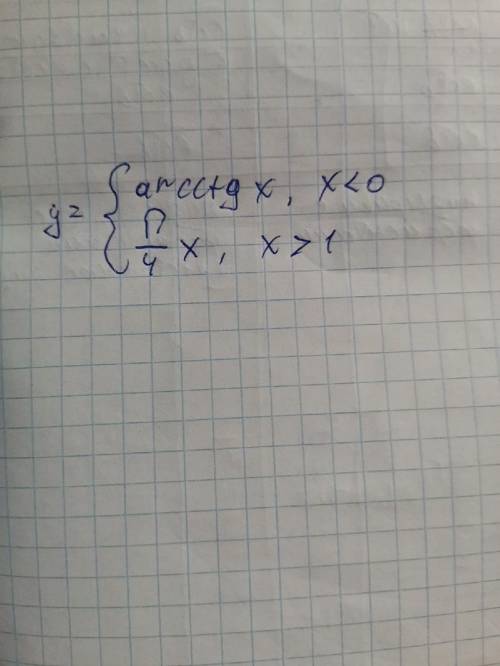 y = { arcctg x, x < 0
П/4 x, x > 1